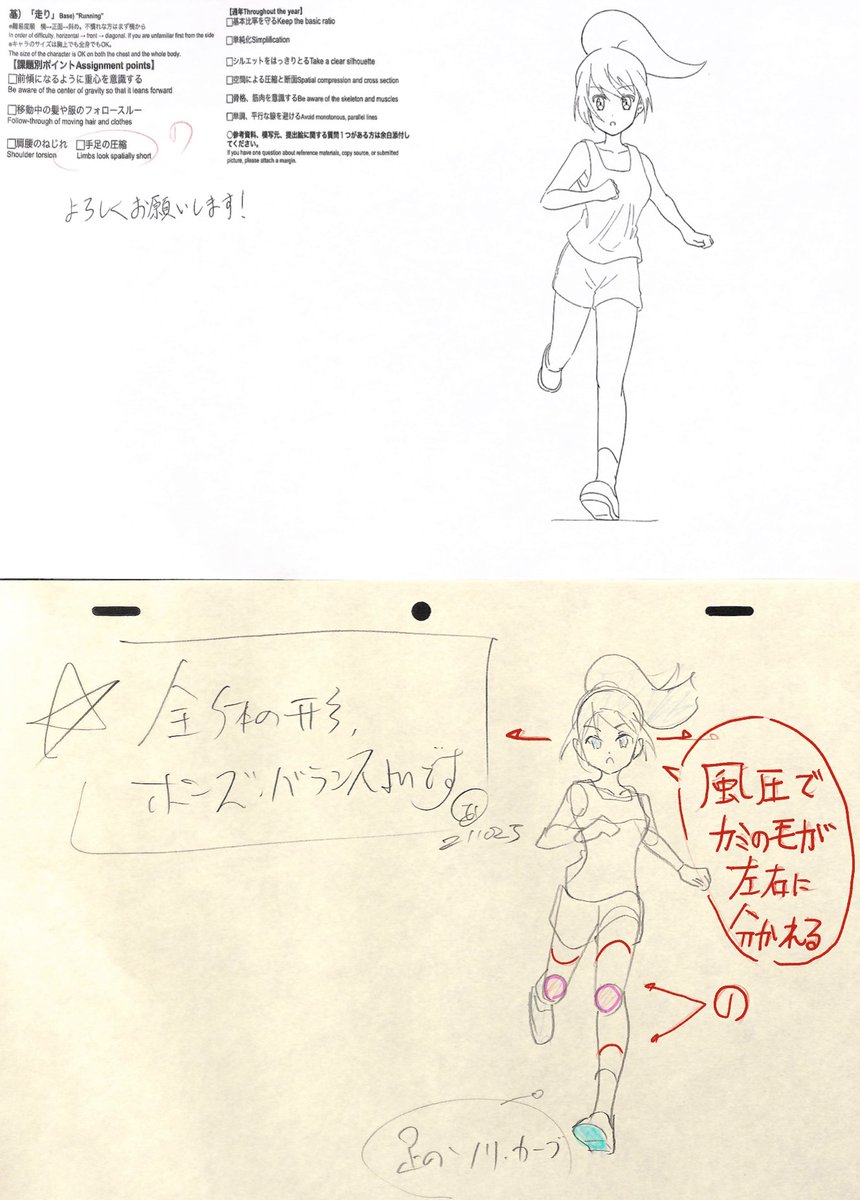 基)「走り」Base) "Running"
※難易度順 横→正面→斜め。不慣れな方はまず横から
In order of difficulty, horizontal → front → diagonal. If you are unfamiliar first from the side
※キャラのサイズは胸上でも全身でもOK。
The size of the character is OK on both the chest and the whole body.
【課題別ポイントAssignment points】
□前傾になるように重心を意識する
Be aware of the center of gravity so that it leans forward
□移動中の髪や服のフォロースルー
Follow-through of moving hair and clothes
□肩腰のねじれ □手足の圧縮
Shoulder torsion Limbs look spatially short
の
【通年Throughout the year】
□基本比率を守るKeep the basic ratio
□単純化Simplification
□シルエットをはっきりとるTake a clear silhouette
□空間による圧縮と断面Spatial compression and cross section
□骨格、筋肉を意識するBe aware of the skeleton and muscles
□単調、平行な線を避けるAvoid monotonous, parallel lines
○参考資料、模写元、提出絵に関する質問1つがある方は余白添付し
てください。
If you have one question about reference materials, copy source, or submitted
picture, please attach a margin.
よろしくお願いします!
全体の形、
ポーズ・バランスよいです
211025
風圧で
カミの毛が
左右に
分かれる
の
足のソリ・カーブ